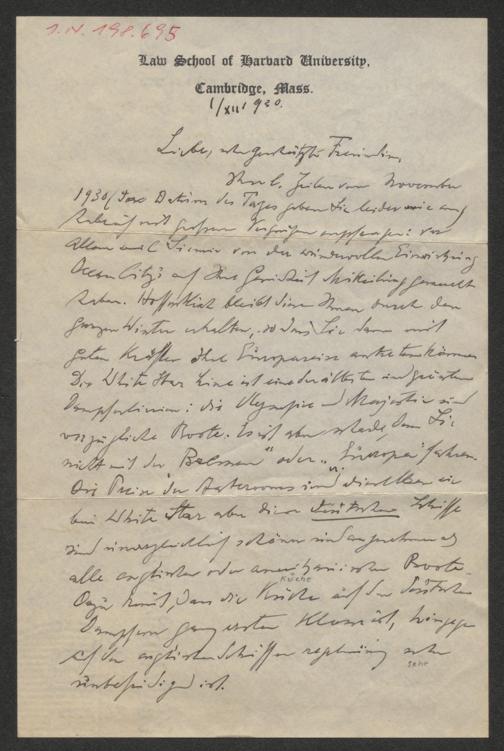 I.N. 198.695
Law School of Harvard University,
Cambridge, Mass.
1/XII 930.
Liebe, sehr geschätzte Freundin,
Ihre l. Zeilen vom November
1930 (das Datum des Tages geben Sie leider nie an)
habe ich mit grossem Vergnügen empfangen: vor
Allem weil Sie mir von der wundervollen Einwirkung
Ocean City's auf Ihre Gesundheit Mitteilung gemacht
haben. Hoffentlich bleibt diese Ihnen durch den
ganzen Winter erhalten, so dass Sie dann mit
guten Kräften Ihre Europareise antreten können
Die White Star Line ist eine der ältesten und
Dampferlinien: die Olympic und Majestic sind
vorzügliche Boote. Es ist aber schade, dass Sie
nicht mit der "Bremen" oder "Europa" fahren.
Die Preise der sind dieselben wie
bei White Star aber diese deutschen Schiffe
sind unvergleichlich schöner und angenehmer als
alle englischen oder amerikanischen Boote.
Küche
Dazu kommt, dass die Küche auf den deutschen
Dampfern ganz ersten Klasse ist, hingegen
auf den englischen Schiffen regelmässig sehr
sehr
unbefriedigend ist.